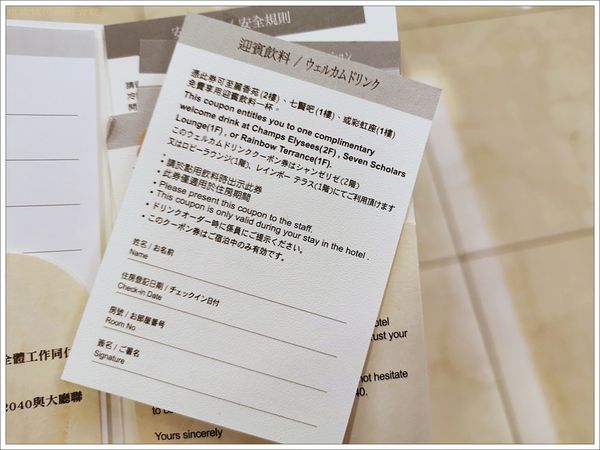 安全規則
迎賓飲料 / ウェルカムドリンク
憑此券可至麗香苑(2樓)、七賢吧(1樓)、或彩虹座(1樓)
免費享用迎賓飲料一杯。
This coupon entitles you to one complimentary
welcome drink at Champs Elysees(2F) , Seven Scholars
Lounge(1F) , or Rainbow Terrance(1F).
このウェルカムドリンククーポン券はシャンゼリゼ(2階)
又はロビーラウンジ(1階)、レインボー テラス(1階)にてご利用頂けます
• 請於點用飲料時出示此券
• 此券僅適用於住房期間
• Please present this coupon to the staff.
• This coupon is only valid during your stay in the hotel .
• ドリンクオーダー時に係員にご提示ください。
• このクーポン券はご宿泊中のみ有効です。
姓名 / お名前
Name
住房登記日期 / チェックイン日付
Check-in Date
房號 / お部屋番号
Room No
簽名 / ご署名
Signature
全體工作同仁
2040與大廳聯
otel
trust your
not hesitate
40.
to
Yours sincerely